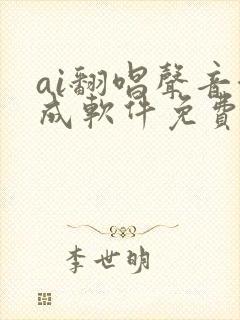 ai翻唱聲音
成軟件免費
李世明